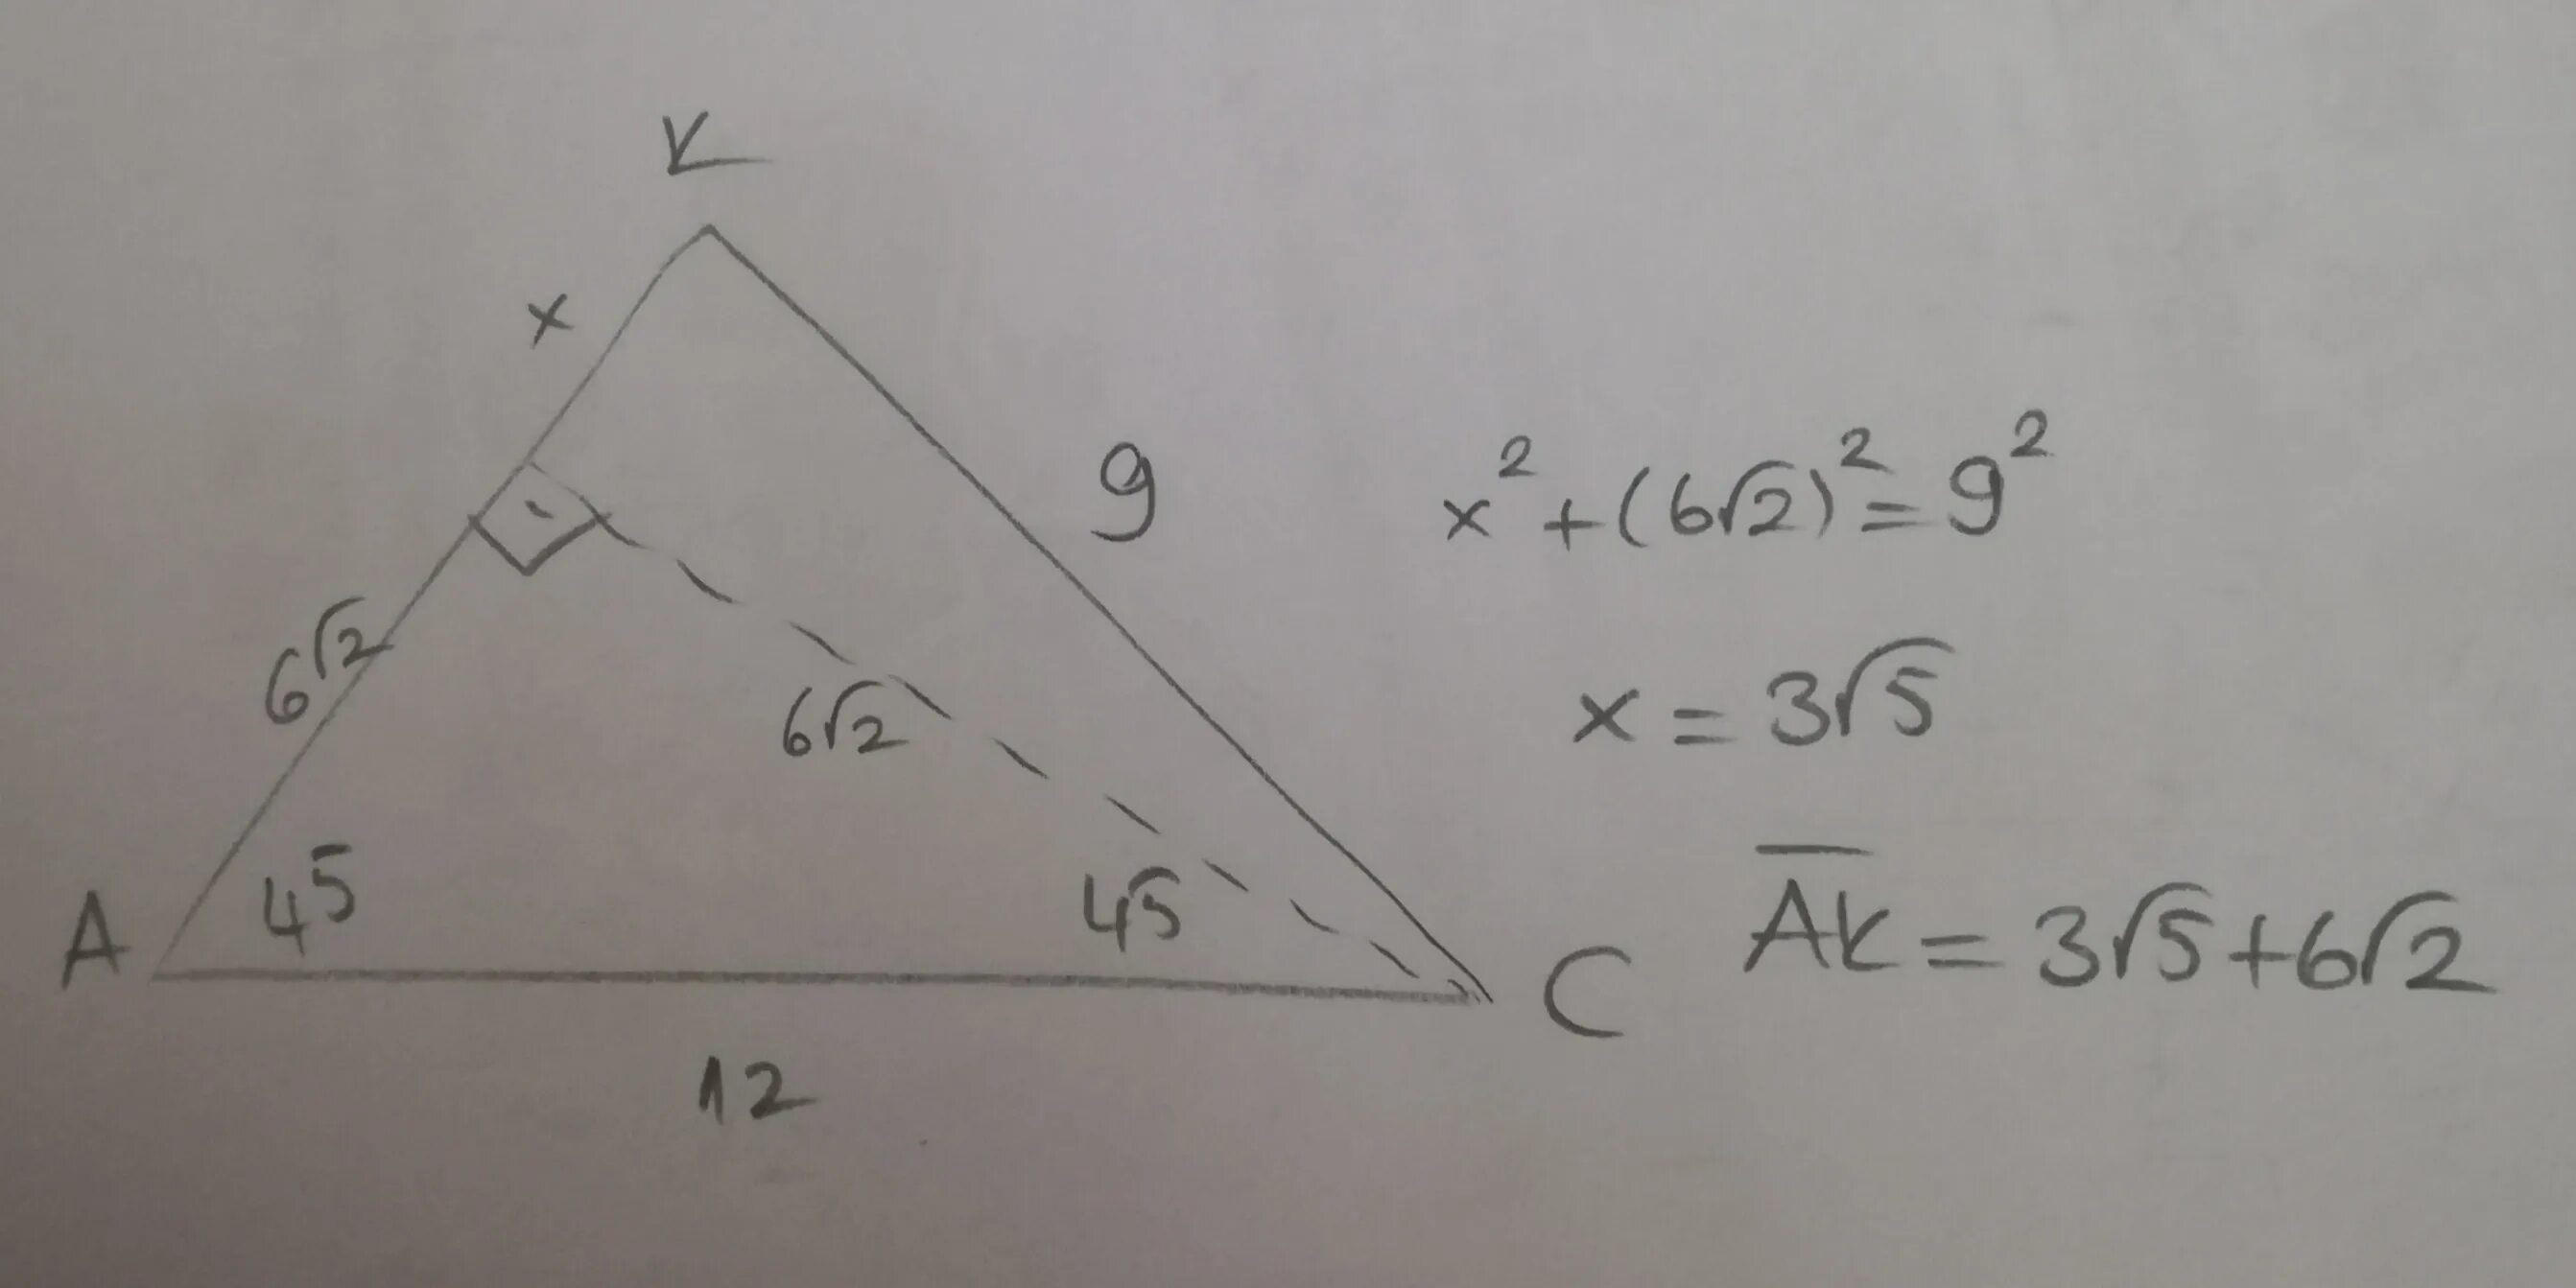 K
x
9
6√2
6√2
45
45
A
C
12
x² + (6√2)² = 9²
x = 3√5
A̅K̅ = 3√5 + 6√2